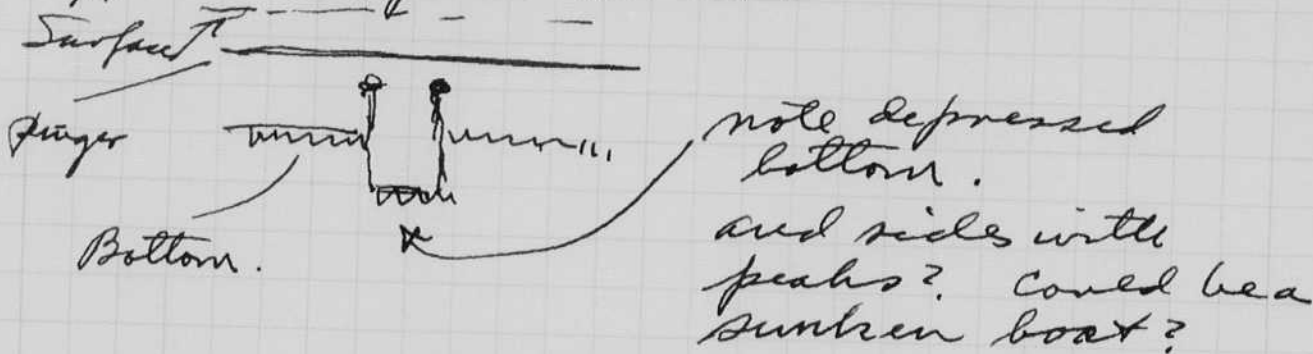 Surface
Pinger
Bottom.
note depressed
bottom.
and sides with
peaks? Could be a
sunken boat?